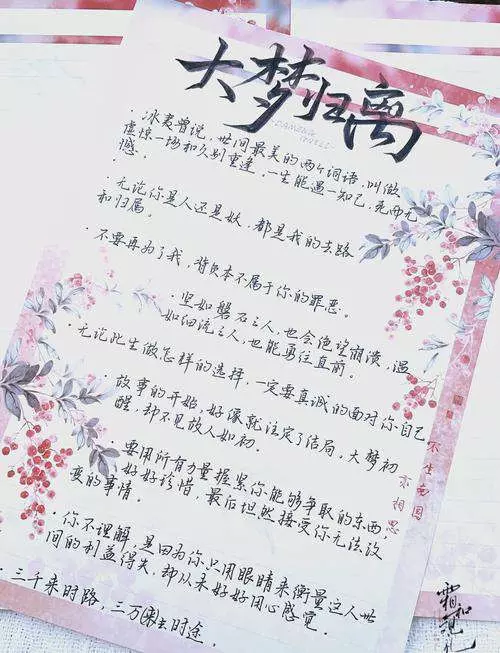 大梦归离
·冰夷曾说，世间最美的两个词语，叫做
虚惊一场和久别重逢，一生能遇一知己，死而无
憾。
·无论你是人还是妖，都是我的去路
和归属。
·不要再为了我，背负本不属于你的罪恶。
·坚如磐石之人，也会绝望崩溃，温
如细流之人，也能勇往直前。
·无论此生做怎样的选择，一定要真诚的面对你自己
·故事的开始，好像就注定了结局。大梦初
醒，却不见故人如初。
·要用所有力量握紧你能够争取的东西，
好好珍惜，最后坦然接受你无法改
变的事情。
·你不理解，是因为你只用眼睛来衡量这人世
间的利益得失，却从未好好用心感觉。
·三千来时路，三万去时途。
不生南国
亦相思